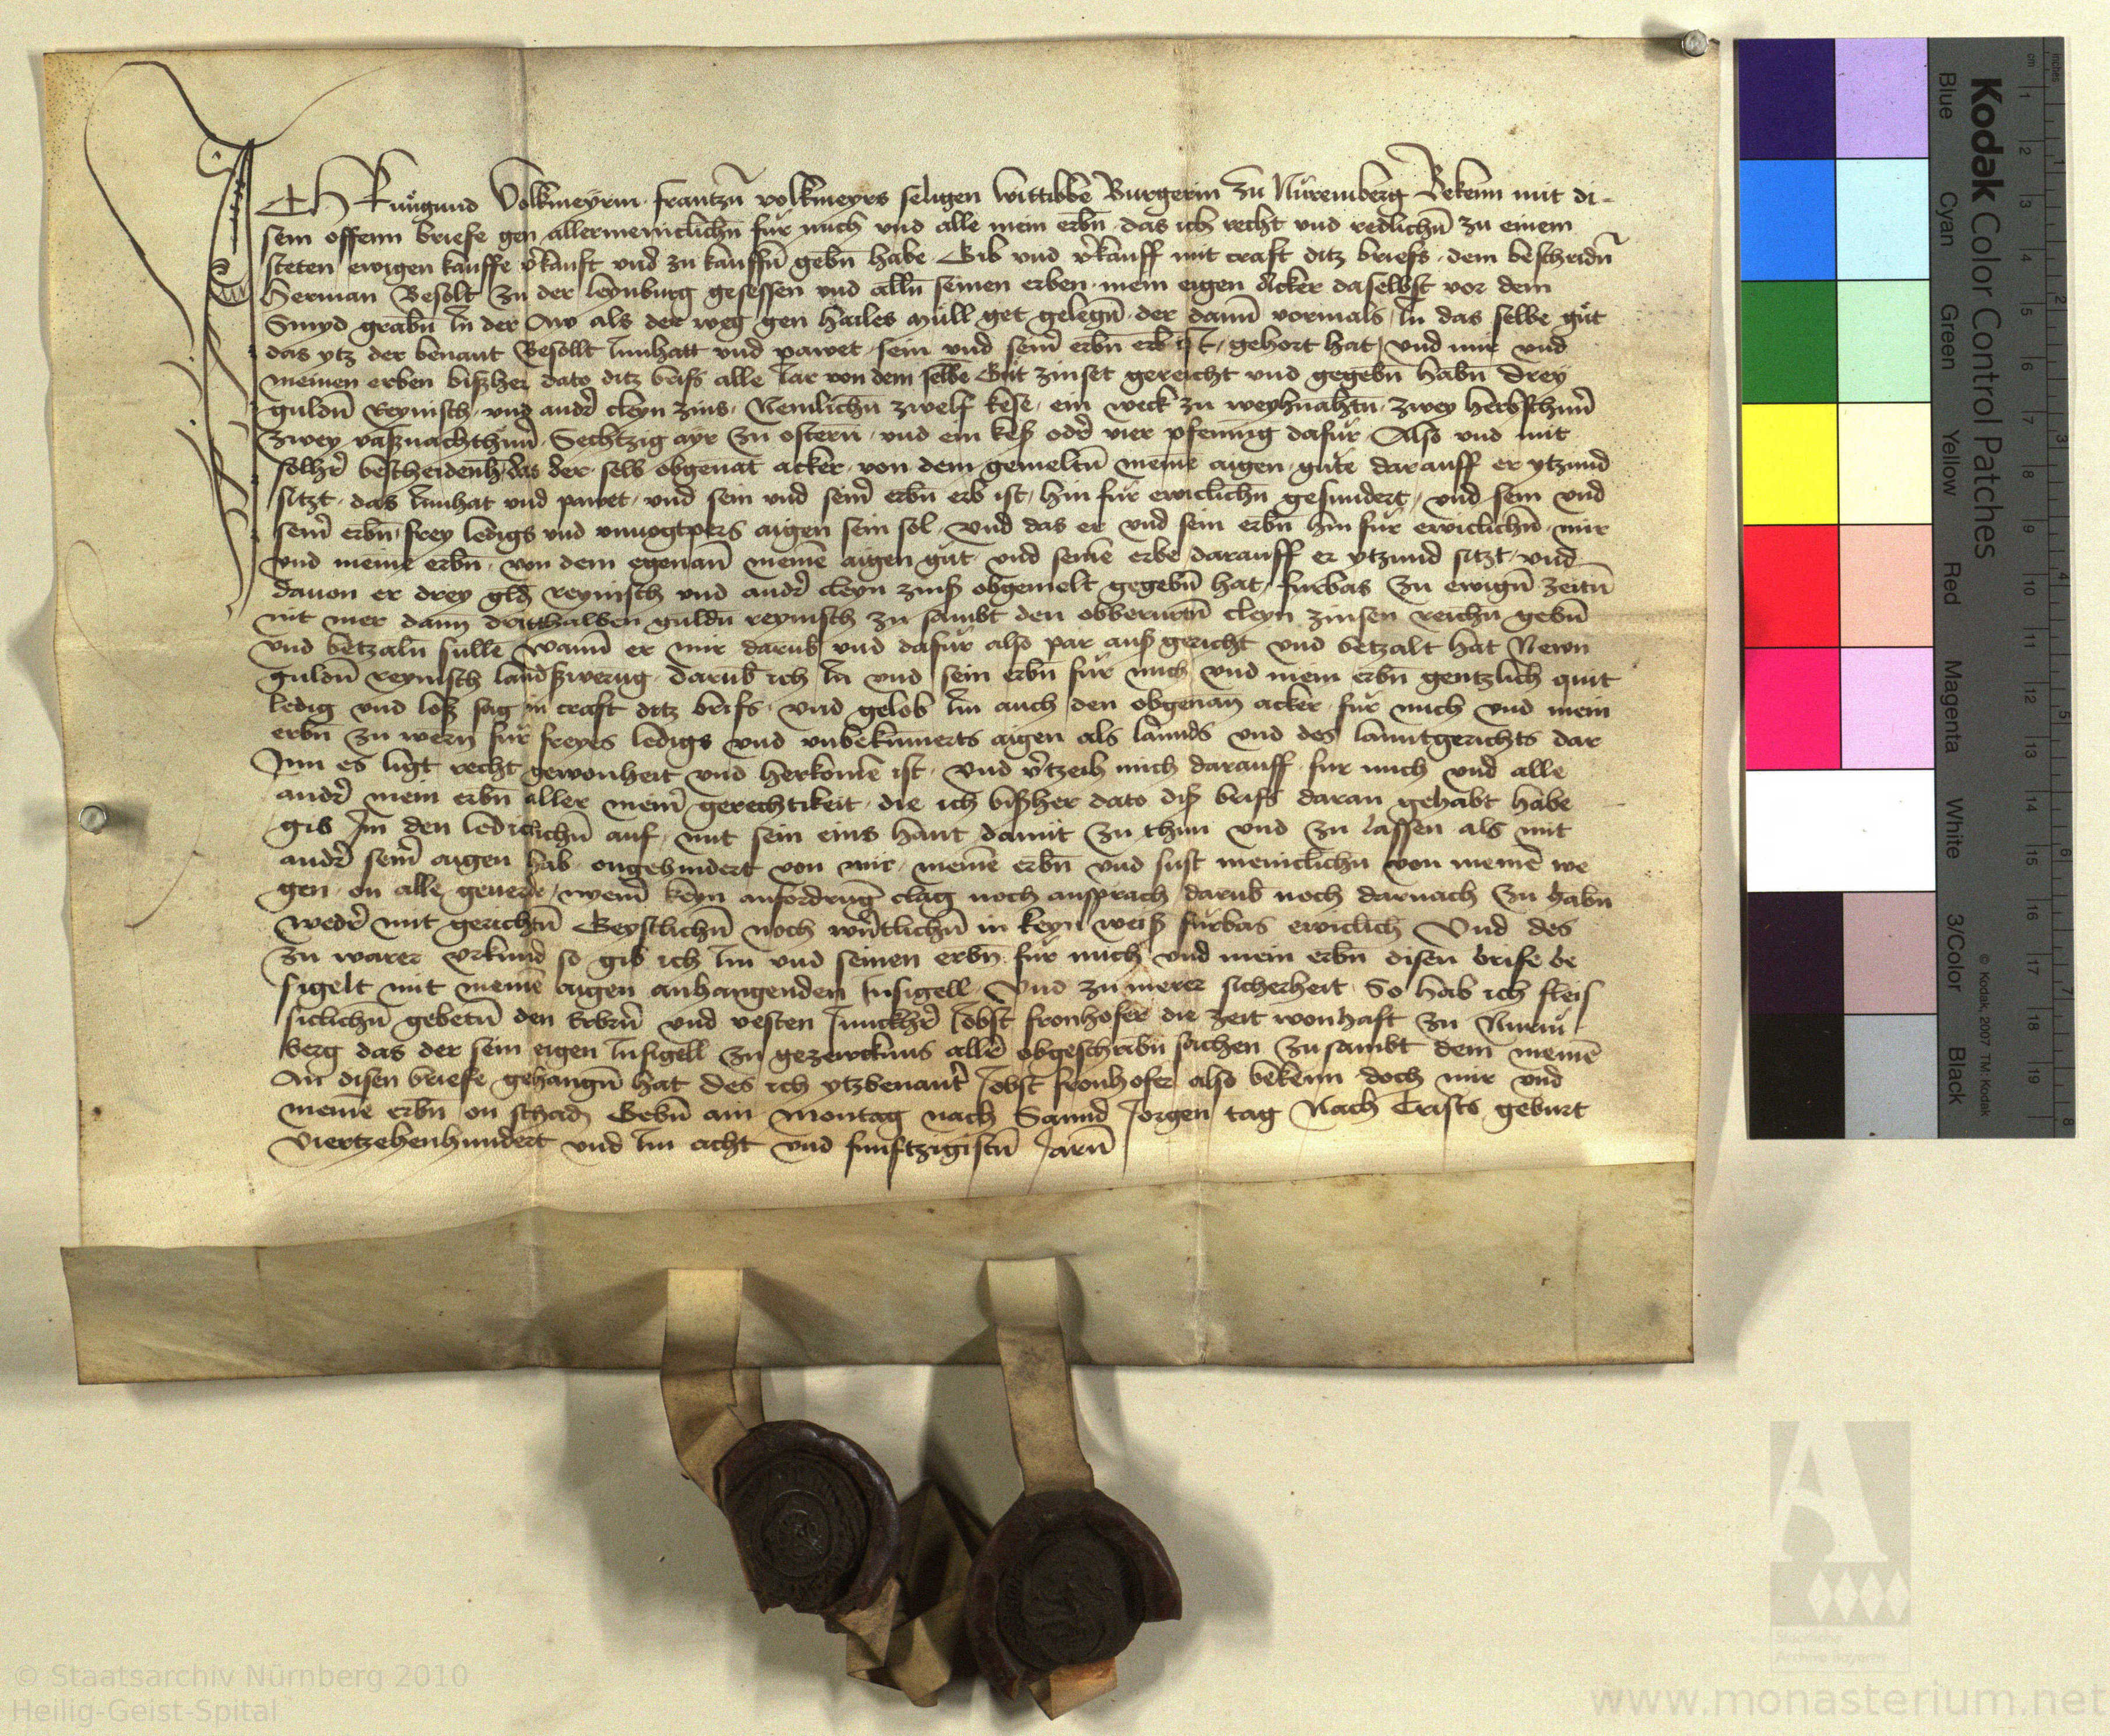 ICH Kungund Volkmeyrin frantzn̄ volkmeyrs seligen wittibbe Burgerin zu Nüremberg Bekenn mit di-
sem offenn briefe gen allermeniclichn̄ für mich vnd alle mein erbn̄ das ich recht vnd redlichn̄ zu einem
steten ewigen kauffe v̓kauft vnd zu kauffn̄ gebn̄ habe Gib vnd v̓kauff mit craft ditz briefs dem bescheidn̄
Herman Besolt zu der leynburg gesessen vnd alln̄ seinen erben mein eigen Acker daselbst vor dem
Smyd grabn̄ In der Aw als der weg gen Hailes müll get gelegn̄ der dann vormals In das selbe güt
das ytz der benant Besollt Innhatt vnd pawet sein vnd sein̓ erbn̄ erb ist gehort hat vnd mir vnd
meinen erben biszher dato ditz briefs alle Iar von dem selbe Gut zinset gereicht vnd gegebn̄ habn̄ drey
guldn̄ Reynisch vnd andr̓ cleyn zins Nemlichn̄ zwelf kese ein weck zu weyhnahtn̄ zwey herbsthun̓
zwey vasznachthun̓ Sechtzig ayr zu ostern vnd ein kesz odr̓ vier pfennig dafür Also vnd mit
solhr̓ bescheidenh das der selb obgenāt acker von dem gemeltn̄ meinē aigen gute darauff er ytzund
sitzt das Innhat vnd pawet vnd sein vnd sein̓ erbn̄ erb ist hin für ewiclichn̄ gesundert vnd sein vnd
sein̓ erbn̄ frey ledigs vnd vnuogtpers aigen sein sol vnd das er vnd sein erbn̄ hin für ewiclichn̄ mir
vnd meinē erbn̄ von dem egenan̄ meinē aigen güt vnd seinē erbe darauff er ytzund sitzt vnd
dauon er drey gld̄ reynisch vnd andr̓ cleyn zinsz obgemelt gegebn̄ hat furbas zu ewign̄ zeitn̄
nit mer dann dritthalben guldn̄ reynisch zu sambt den obberurtn̄ cleyn zinsen reichn̄ gebn̄
vnd betzaln̄ sulle wann er mir darub̄ vnd dafür also par ausz gericht vnd betzalt hat Newn
guldn̄ reynisch landszwerug darub̄ ich In̄ vnd sein erbn̄ für mich vnd mein erbn̄ gentzlich quit
ledig vnd losz sag in craft ditz briefs vnd gelob Im auch den obgenan̄ acker für mich vnd mein
erbn̄ zu wern für freyes ledigs vnd vnbekumerts aigen als lannds vnd des lanntgerichts dar
Inn es ligt recht gewonheit vnd herkomē ist vnd v̓tzeih mich darauff fur mich vnd alle
andr̓ mein erbn̄ aller mein̓ gerechtikeit die ich biszher dato disz briefs daran gehabt habe
gib Im den lediclichn̄ auf mit sein eins hant damit zu thun vnd zu lassen als mit
andr̓ sein̓ aigen hab ongehindert von mir meinē erbn̄ vnd sust meniclichn̄ von meinē we
gen on alle geuerde keyn anfordruḡ clag noch ansprach darub̄ noch darnach zu habn̄
wedr̓ mit gerichtn̄ Geystlichn̄ noch w̓ntlichn̄ in keyn weisz fürbas ewiclich Vnd des
zu warer vrkund so gib ich Im vnd seinen erbn̄ für mich vnd mein erbn̄ disen briefe be
sigelt mit meinē aigen anhangenden Insigell Vnd zu merer sicherheit So hab ich fleis
siclichn̄ gebetn̄ den Erbrn̓ vnd vesten Junckhr̓ Jobst fronhofer die zeit wonhaft zu Nurm̄
berg das der sein eigen Insigell zu gezewcknus allr̓ obgeschribn̄ sachen zu sambt dem meinē
An disen briefe gehangn̄ hat des ich ytzbenant̓ Jobst fronhofer also bekenn doch mir vnd
meinē erbn̄ on schadn̄ Gebn̄ am Montag nach Sannd Jorgen tag Nach Cristi geburt
viertzehenhundert vnd Im acht vnd funftzigistn̄ Jarn̄
Kodak Color Control Patches
Blue Cyan Green Yellow Red Magenta White 3/Color Black
© Kodak, 2007 TM: Kodak
© Staatsarchiv Nürnberg 2010
Heilig-Geist-Spital
www.monasterium.net